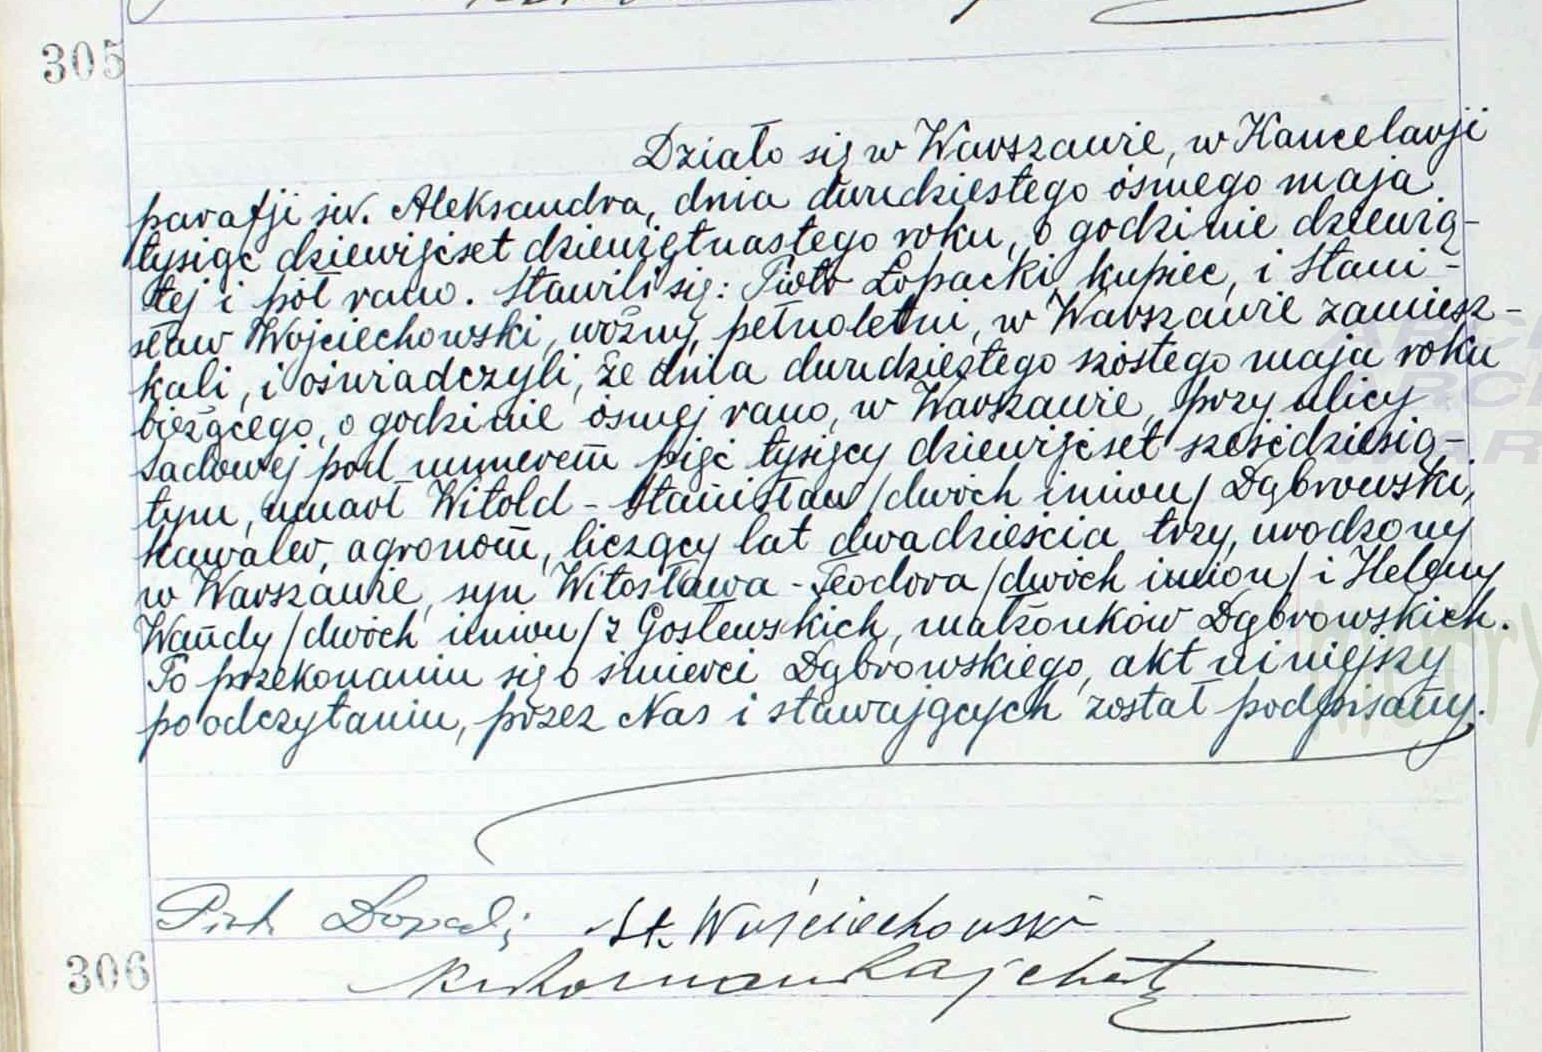 305
Działo się w Warszawie, w Kancelarji
parafji św. Aleksandra, dnia dwudziestego ósmego maja
tysiąc dziewięćset dziewiętnastego roku, o godzinie dziewią-
tej i pół rano. Stawili się: Piotr Łopacki, kupiec, i Stani-
sław Wojciechowski, woźny, pełnoletni, w Warszawie zamiesz-
kali, i oświadczyli, że dnia dwudziestego szóstego maja roku
bieżącego, o godzinie ósmej rano, w Warszawie, przy ulicy
Sadowej pod numerem pięć tysięcy dziewięćset sześćdziesią-
tym, umarł Witold-Stanisław /dwóch imion/ Dąbrowski,
kawaler, agronom, liczący lat dwadzieścia trzy, urodzony
w Warszawie, syn Witosława-Teodora /dwóch imion/ i Heleny
Wandy /dwóch imion/ z Gostewskich, małżonków Dąbrowskich.
Po przekonaniu się o śmierci Dąbrowskiego, akt niniejszy
po odczytaniu, przez Nas i stawających został podpisany.
Piotr St. Wojciechowski
306